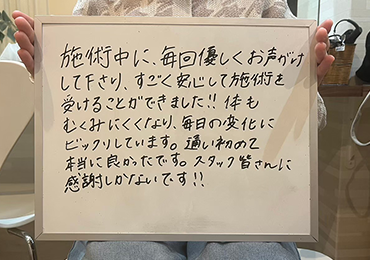 施術中に、毎回優しくお声がけ
して下さり、すごく安心して施術を
受けることができました!! 体も
むくみにくくなり、毎日の変化に
ビックリしています。通い初めて
本当に良かったです。スタッフ皆さんに
感謝しかないです!!